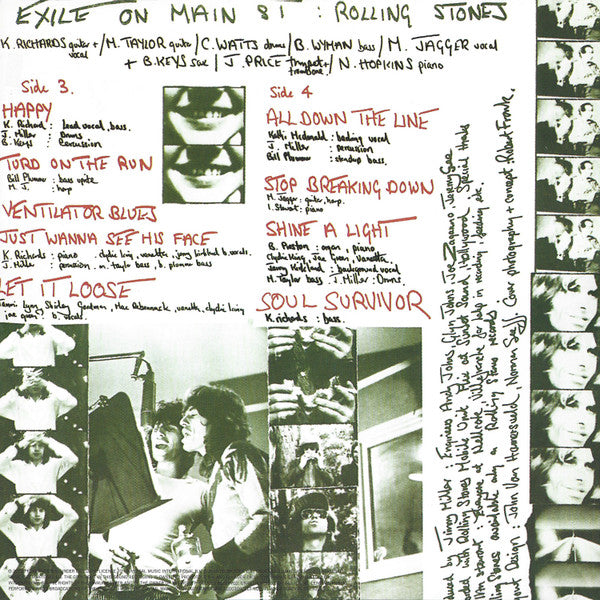 EXILE ON MAIN ST : ROLLING STONES
K. RICHARDS guitar + / M. TAYLOR guitar / C. WATTS drums / B. WYMAN bass / M. JAGGER vocal
vocal
+ B. KEYS sax / J. PRICE trumpet + / N. HOPKINS piano
trombone
Side 3.
HAPPY
K. Richard : lead vocal, bass.
J. Miller : Drums
B. Keys : Percussion
TURD ON THE RUN
Bill Plummer : bass
M. J. : harp
VENTILATOR BLUES
JUST WANNA SEE HIS FACE
K. Richards : piano clydie king, vanetta, jerry kirkland b. vocals.
J. Miller : percussion, m. taylor bass, b. plummer bass
LET IT LOOSE
Tammi Lynn, Shirley Goodman, Mac Rebennack, vanetta, clydie king
joe green b. vocals.
Side 4
ALL DOWN THE LINE
Kathi Mcdonald : backing vocal
J. Miller : percussion
Bill Plummer : standup bass.
STOP BREAKING DOWN
M. Jagger : guitar, harp.
I. Stewart : piano
SHINE A LIGHT
B. Preston : organ, piano
Clydie King, Joe Green, Vanetta
Jerry Kirkland : background vocal
M. Taylor bass J. Miller : Drums.
SOUL SURVIVOR
K. richards : bass.
by Jimmy Miller : Engineers Andy Johns, Glyn Johns, Joe Zagarino, Jeremy Gee
with Rolling Stones Mobile Unit, Also at Sunset Sound, Hollywood. Special thanks
stewart : everyone at Nellcote, Villefranche for help in recording, feeding etc.
Stones available only on Rolling Stones records
Design : John Van Hamersveld, Norman Seeff. Cover photography + concept Robert Frank.